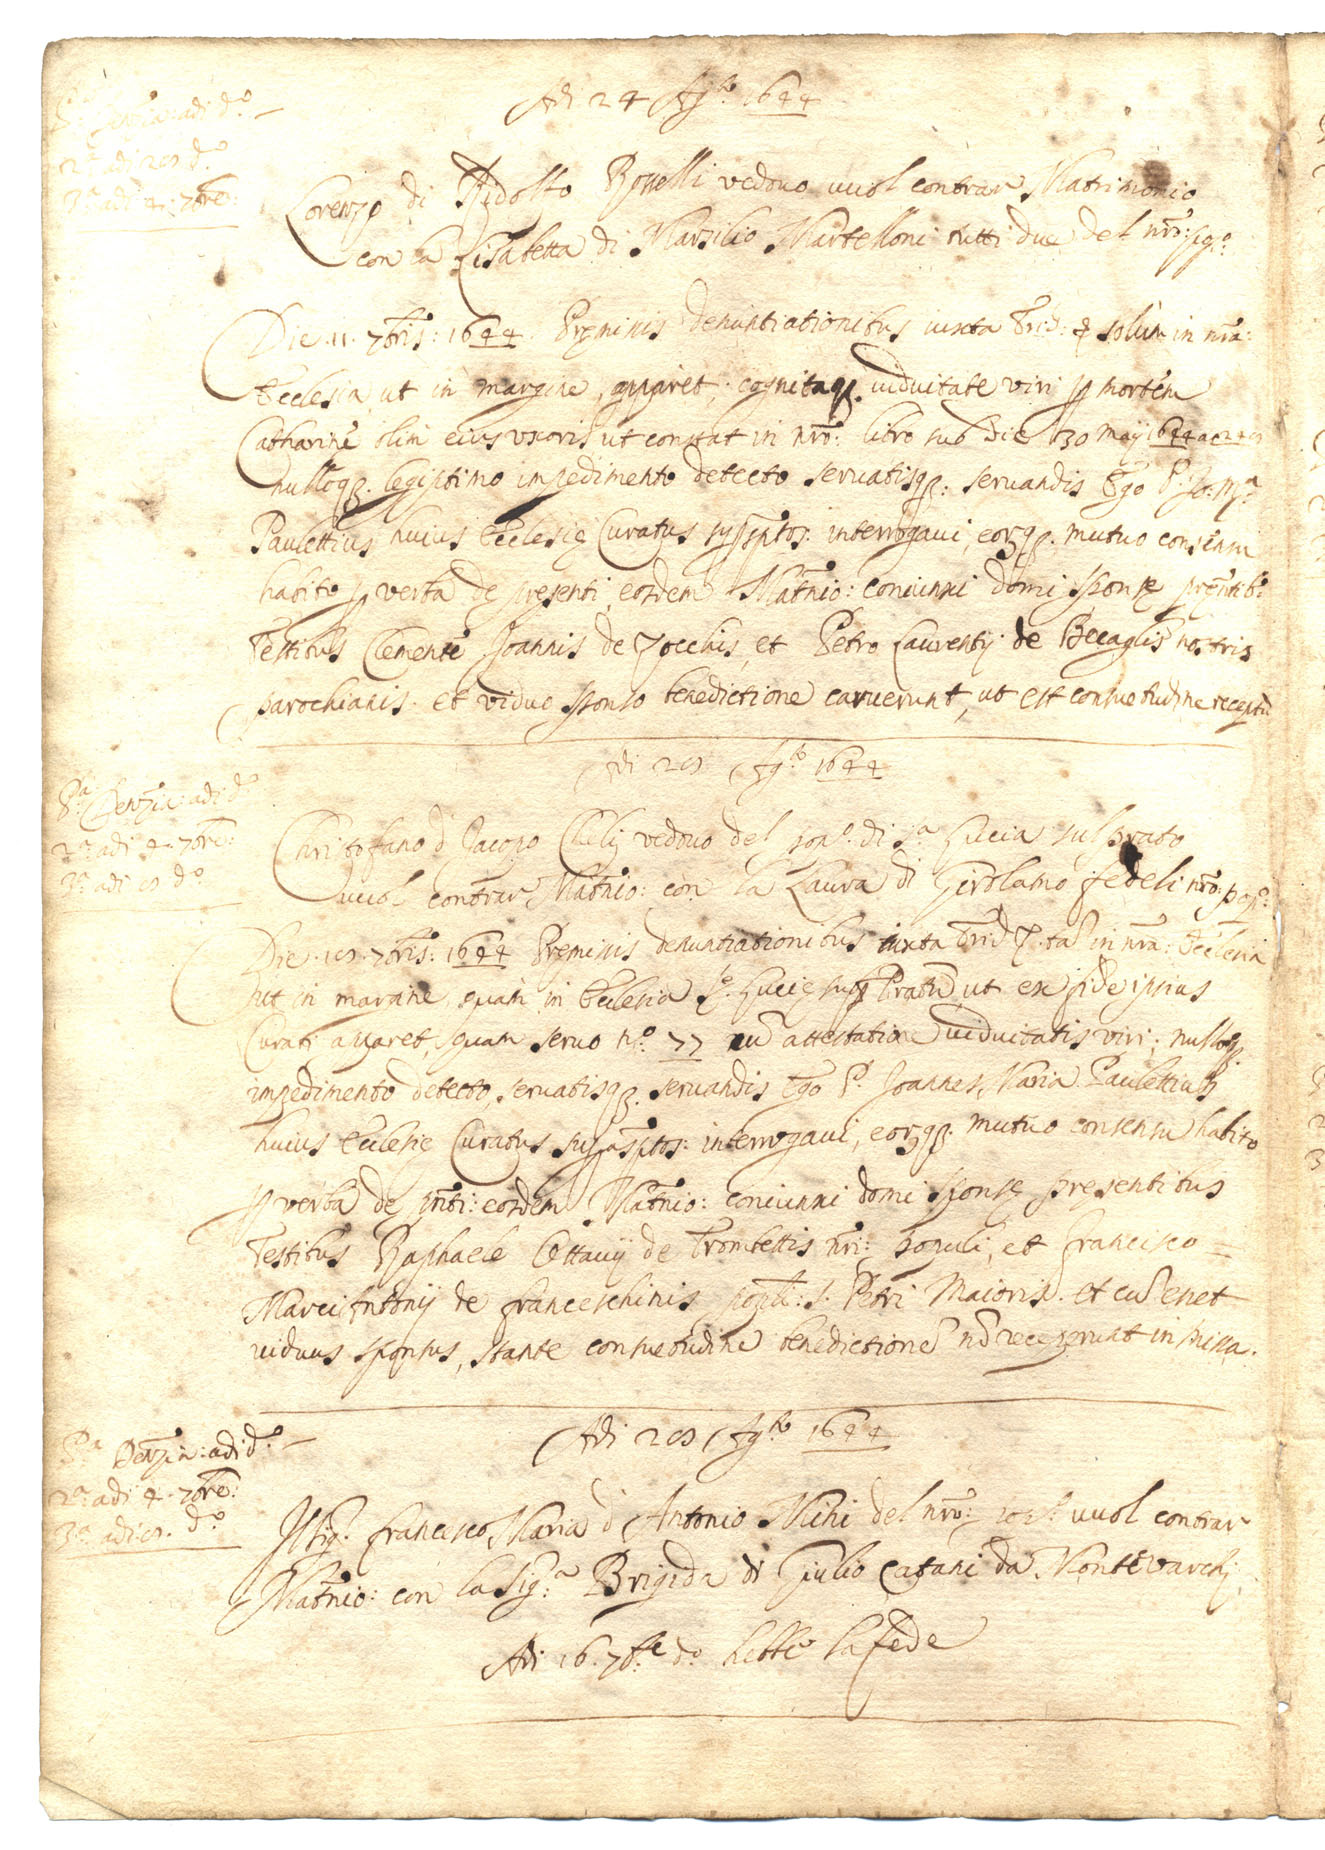 Adi 24 Ag.to 1644
P.a Denzia: adi d.o
2.a adi 28 d.o
3.a adi 4. 7bre:
Lorenzo di Ridolfo Bosselli vedovo vuol contrar Matrimonio
con la Lisabetta di Marsilio Martelloni tutti due del nro: pp.o
Die 11. 7bris: 1644 Premissis denuntiationibus iuxta Trid: et solum in nra:
Ecclesia ut in margine apparet, cognitaq. viduitate viri p mortem
Catharine olim eius uxoris ut constat in nro: libro sub die 30 Maij 1644
nulloq. legiptimo impedimento detecto servatisq: servandis Ego P. Jo: M.a
Paulettius huius Ecclesie Curatus suppsptos: interrogavi, eorq. mutuo consensu
habito p verba de presenti, eosdem Matnio: coniunxi domi sponse presntib:
Testibus Clemente Joannis de Zocchis, et Petro Laurentij de Beccaglis nostris
parochianis. et viduo sponso benedictione caruerunt, ut est consuetudine receptu
Adi 28 Ag.to 1644
P.a Denzia: adi d.o
2.a adi 4. 7bre:
3.a adi 8 d.o
Christofano d Jacopo Chelij vedovo del pop.o di S.a Lucia sul prato
vuol contrar Matnio: con la Laura di Girolamo Fedeli nro: pop.o
Die 18. 7bris: 1644 Premissis denuntiationibus iuxta Trid. ta in nra: Ecclesia
ut in margine, quam in Ecclesia S.e Lucie sup Pratu ut ex fide ipsius
Curati apparet, quam servo n.o 77 cu attestatione viduitatis viri; nulloq.
impedimento detecto, servatisq. servandis Ego P. Joannes Maria Paulettius
huius Ecclesie Curatus suprasptos: interrogavi, eorq. mutuo consensu habito
p verba de pnti: eosdem Matnio: coniunxi domi sponse presentibus
Testibus Raphaele Ottavij de Trombettis nri: populi, et Francisco
Marci Antonij de Franceschinis popli: S. Petri Maioris. et cu esset
viduus sponsus, stante consuetudine benedictione no receperunt in missa.
Adi 28 Ag.to 1644
P.a Denzia: adi d.o
2.a adi 4. 7bre:
3.a adi 8. d.o
Il Sig. Francesco Maria d Antonio Mini del nro: pop.o vuol contrar
Matnio: con la Sig.a Brigida di Giulio Catani da Montevarchj
Adi 16. 7bre d.o hebbe la fede